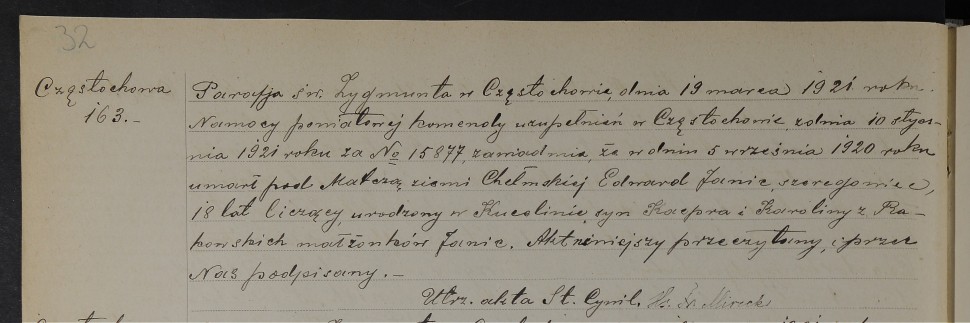 32
Częstochowa
163.-
Parafja św. Zygmunta w Częstochowie, dnia 19 marca 1921 roku.
Namocy poniatowej komendy uzupełnień w Częstochowie, zdnia 10 stycz-
nia 1921 roku za No 15877, zawiadmia, że w dniu 5 września 1920 roku
umarł pod Małczą, ziemi Chełmskiej Edward Janic, szeregowiec,
18 lat liczący, urodzony w Kucelinie, syn Kacpra i Karoliny z Ra-
kowskich małżonków Janic. Akt niniejszy przeczytany, i przez
Nas podpisany.-
Utrz. akta St. Cywil.